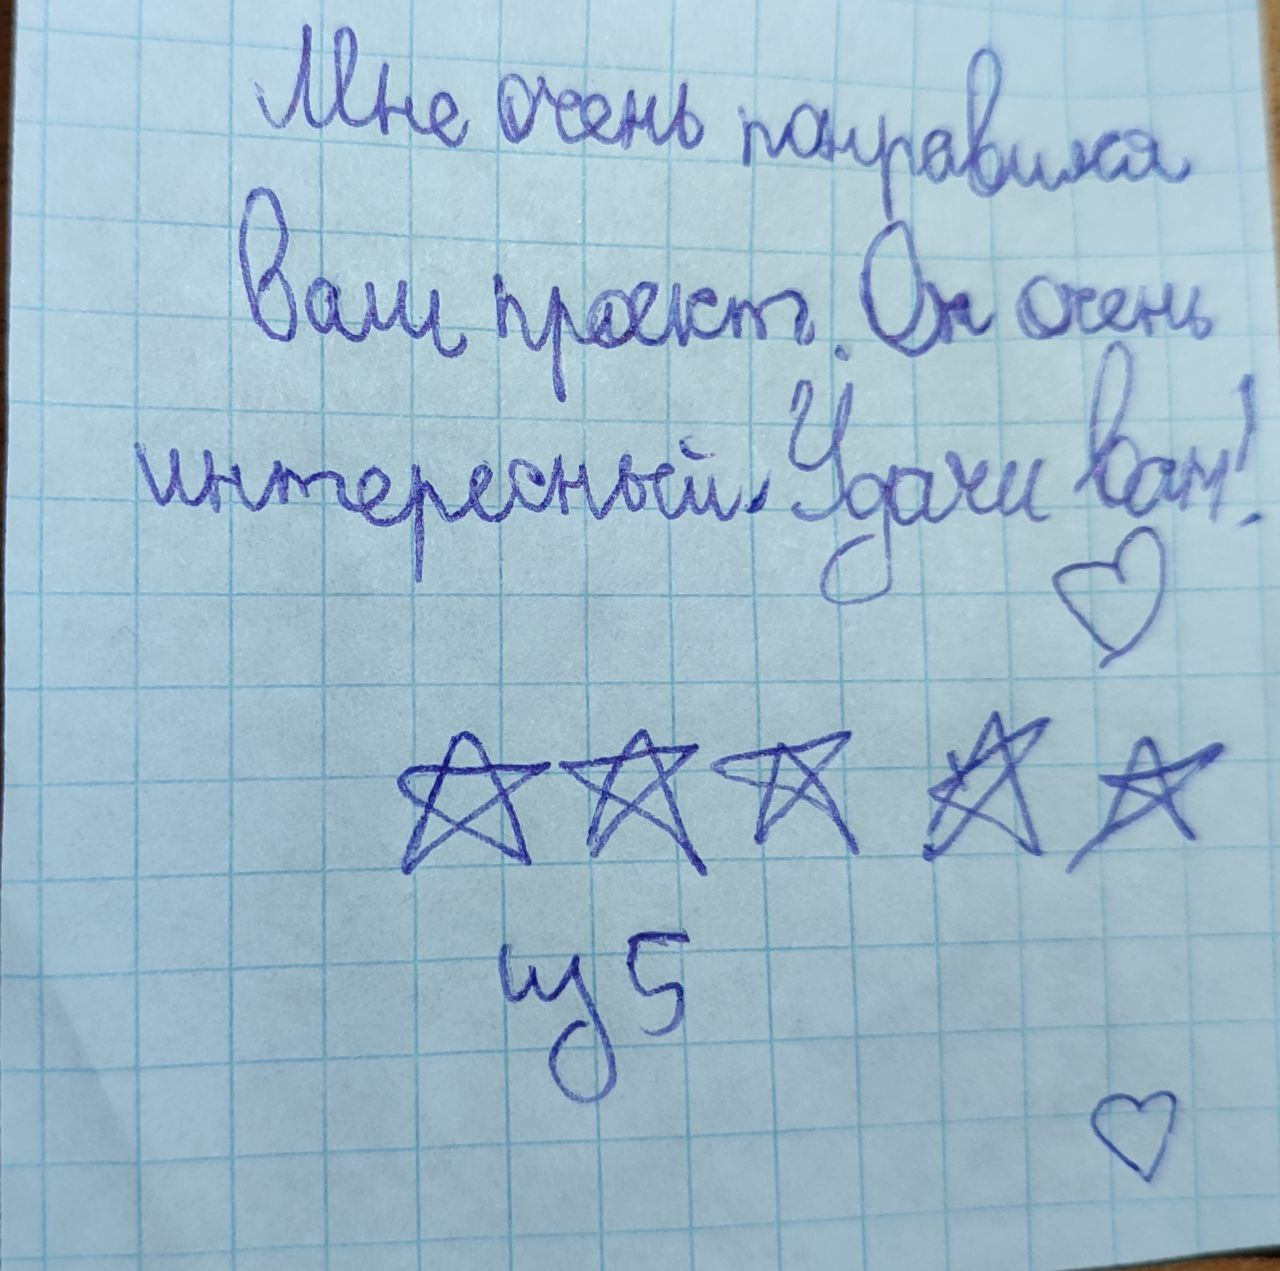 Мне очень понравился
Ваш проект. Он очень
интересный. Удачи вам!
из 5